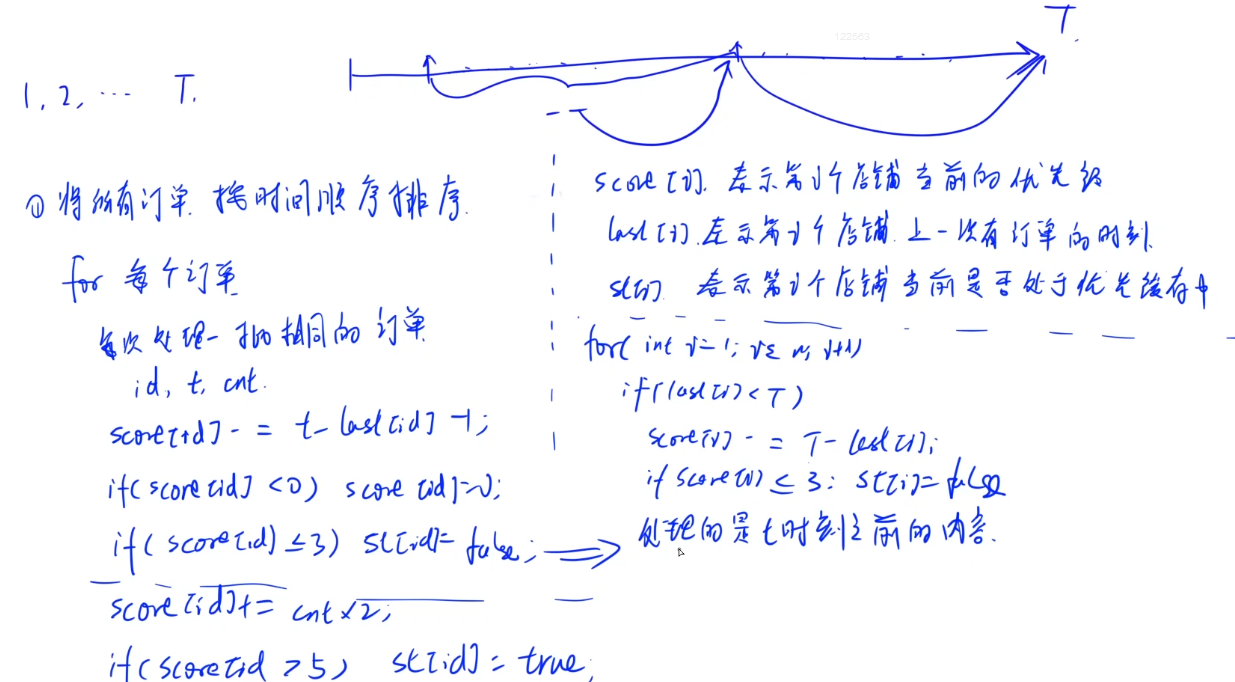 T.
122569
1, 2, ... T.
① 将所有订单 按时间顺序排序.
for 每个订单
每次处理一批相同的订单
id, t, cnt.
score[id] -= t - last[id] - 1;
if(score[id] < 0) score[id] = 0;
if(score[id] ≤ 3) st[id] = false;
score[id] += cnt × 2;
if(score[id > 5) st[id] = true;
score[i]. 表示第i个店铺当前的优先级
last[i]. 表示第i个店铺 上一次有订单的时刻.
st[i] 表示第i个店铺当前是否处于优先缓存中
for( int i=1; i≤n; i++)
if(last[i] < T)
score[i] -= T - last[i];
if score[i] ≤ 3: st[i] = false
处理的是t时刻之前的内容.